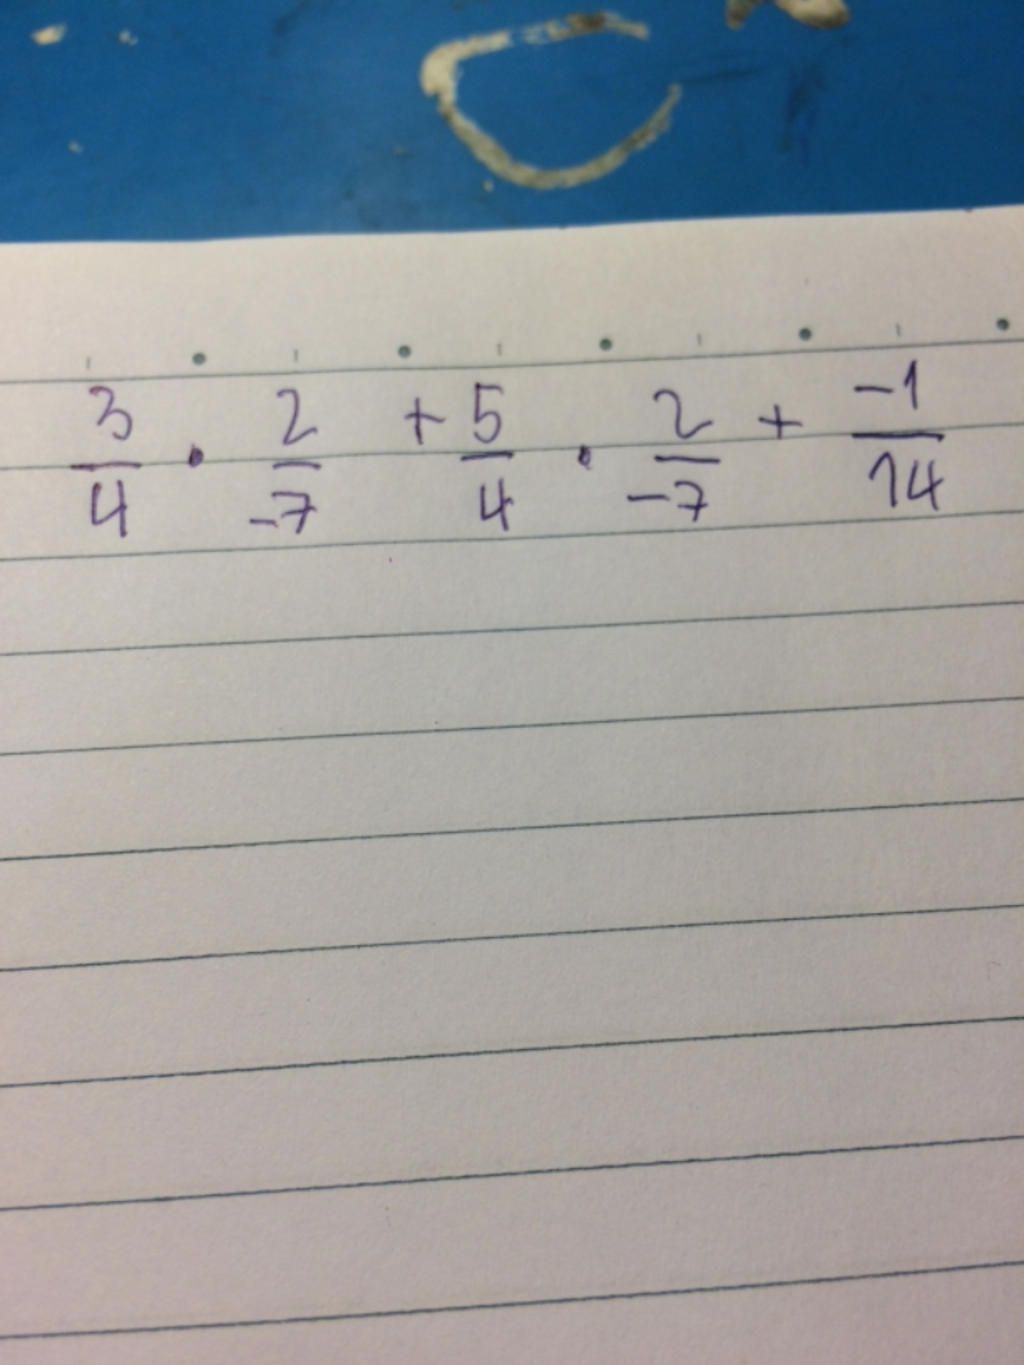 3/4 . 2/-7 + 5/4 . 2/-7 + -1/14